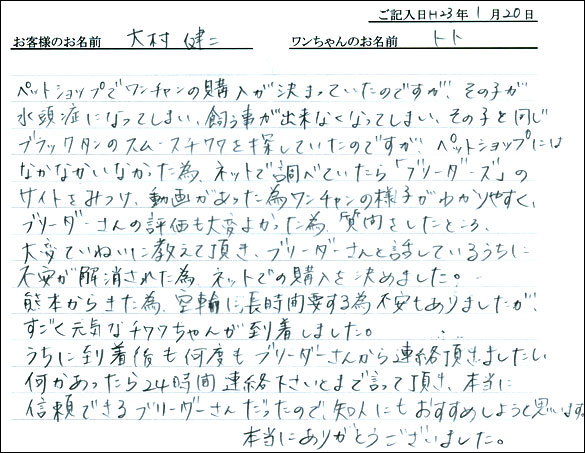 ご記入日H23年1月20日
お客様のお名前 大村健二 ワンちゃんのお名前 トト
ペットショップでワンチャンの購入が決まっていたのですが、その子が
水頭症になってしまい、飼う事が出来なくなってしまい、その子と同じ
ブラックタンのスムースチワワを探していたのですが、ペットショップには
なかなかいなかった為、ネットで調べていたら「ブリーダーズ」の
サイトをみつけ、動画があった為ワンチャンの様子がわかりやすく、
ブリーダーさんの評価も大変よかった為、質問をしたところ、
大変ていねいに教えて頂き、ブリーダーさんと話しているうちに
不安が解消された為、ネットでの購入を決めました。
熊本からきた為、空輸に長時間要する為不安もありましたが、
すごく元気なチワワちゃんが到着しました。
うちに到着後も何度もブリーダーさんから連絡頂きましたし
何かあったら24時間連絡下さいとまで言って頂き、本当に
信頼できるブリーダーさんだったので、知人にもおすすめしようと思います。
本当にありがとうございました。